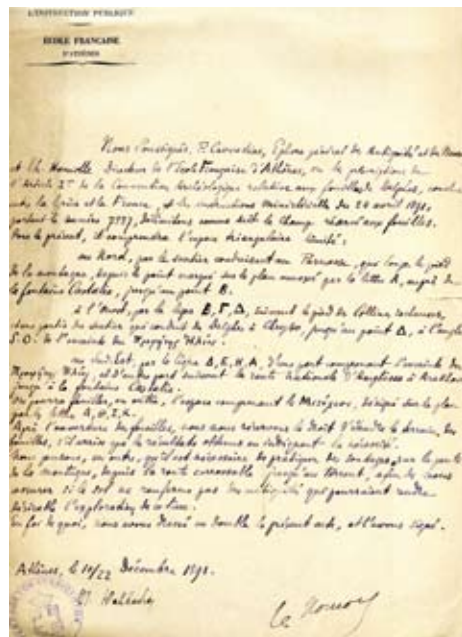 L'INSTRUCTION PUBLIQUE
ECOLE FRANÇAISE
D'ATHÈNES
Nous soussignés, P. Cavvadias, Ephore général des Antiquités et des
et Th. Homolle Directeur de l'Ecole Française d'Athènes, vu les
l'Article 2 de la Convention Archéologique relative aux fouilles de Delphes,
la Grèce et la France, et les instructions ministérielles du 20 avril 1891,
portant le numéro délimitons comme suit le champ réservé aux fouilles.
Pour le présent, il comprendra l'espace triangulaire limité:
au Nord, par le sentier conduisant au Parnasse, qui longe le pied
de la montagne, depuis le point marqué sur le plan annexé par la lettre A, auprès de
la fontaine Castalie, jusqu'au point B.
à l'Ouest, par la ligne B, Γ, Δ, suivant le pied des collines rocheuses,
partie du sentier qui conduit de Delphes à Chrysso, jusqu'au point Δ, à l'angle
S.O. de l'enceinte du
au Sud-Est, par la ligne d'une part comprenant l'enceinte du
et d'autre part suivant la route nationale
jusqu'à la fontaine Castalie.
On pourra fouiller, en outre, l'espace comprenant le désigné sur le plan
par les lettres
Après l'ouverture des fouilles, nous nous réservons le droit d'étendre le terrain des
fouilles, s'il arrive que les résultats obtenus en indiquent la nécessité.
Nous pensons, en outre, qu'il est nécessaire de pratiquer des sondages, sur la pente
de la montagne, depuis la route carrossable jusqu'au torrent, afin de nous
assurer si le sol ne renferme pas des antiquités qui pourraient rendre
désirable l'exploration de ce lieu.
En foi de quoi, nous avons dressé en double le présent acte, et l'avons signé.
Athènes, le 10/22 Décembre 1891.